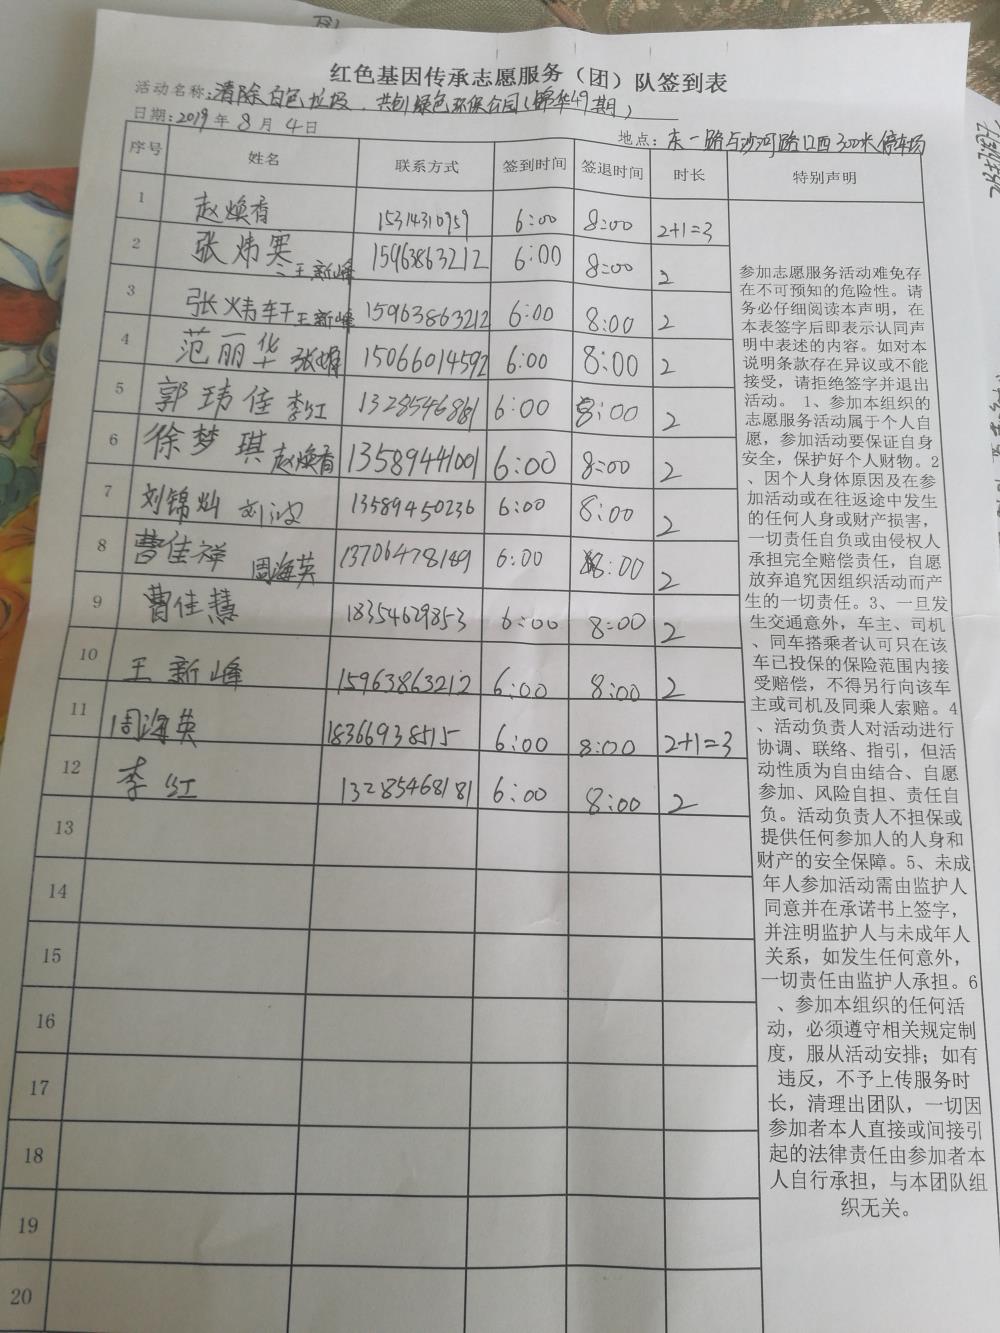 红色基因传承志愿服务（团）队签到表
活动名称:清除白色垃圾．共创绿色环保公园(锦华49期)
日期:2019年8月4日
地点：东一路与沙河路口西300米停车场
序号 姓名 联系方式 签到时间 签退时间 时长 特别声明
1 赵焕香 15314310959 6:00 8:00 2+1=3
2 张炜 王新峰 15963863212 6:00 8:00 2
3 张炜轩 王新峰 15963863212 6:00 8:00 2
4 范丽华 15066014592 6:00 8:00 2
5 郭玮佳 李红 6:00 8:00 2
6 徐梦琪 赵焕香 13589441001 6:00 8:00 2
7 刘锦灿 刘波 13589450236 6:00 8:00 2
8 曹佳祥 周海英 13706478149 6:00 8:00 2
9 曹佳慧 18354629853 6:00 8:00 2
10 王新峰 15963863212 6:00 8:00 2
11 周海英 18366938515 6:00 8:00 2+1=3
12 李红 13285468181 6:00 8:00 2
13
14
15
16
17
18
19
20
参加志愿服务活动难免存
在不可预知的危险性。请
务必仔细阅读本声明，在
本表签字后即表示认同声
明中表述的内容。如对本
说明条款存在异议或不能
接受，请拒绝签字并退出
活动。 1、参加本组织的
志愿服务活动属于个人自
愿，参加活动要保证自身
安全，保护好个人财物。2
、因个人身体原因及在参
加活动或在往返途中发生
的任何人身或财产损害，
一切责任自负或由侵权人
承担完全赔偿责任，自愿
放弃追究因组织活动而产
生的一切责任。3、一旦发
生交通意外，车主、司机
、同车搭乘者认可只在该
车已投保的保险范围内接
受赔偿，不得另行向该车
主或司机及同乘人索赔。4
、活动负责人对活动进行
协调、联络、指引，但活
动性质为自由结合、自愿
参加、风险自担、责任自
负。活动负责人不担保或
提供任何参加人的人身和
财产的安全保障。5、未成
年人参加活动需由监护人
同意并在承诺书上签字，
并注明监护人与未成年人
关系，如发生任何意外，
一切责任由监护人承担。6
、参加本组织的任何活
动，必须遵守相关规定制
度，服从活动安排；如有
违反，不予上传服务时
长，清理出团队，一切因
参加者本人直接或间接引
起的法律责任由参加者本
人自行承担，与本团队组
织无关。